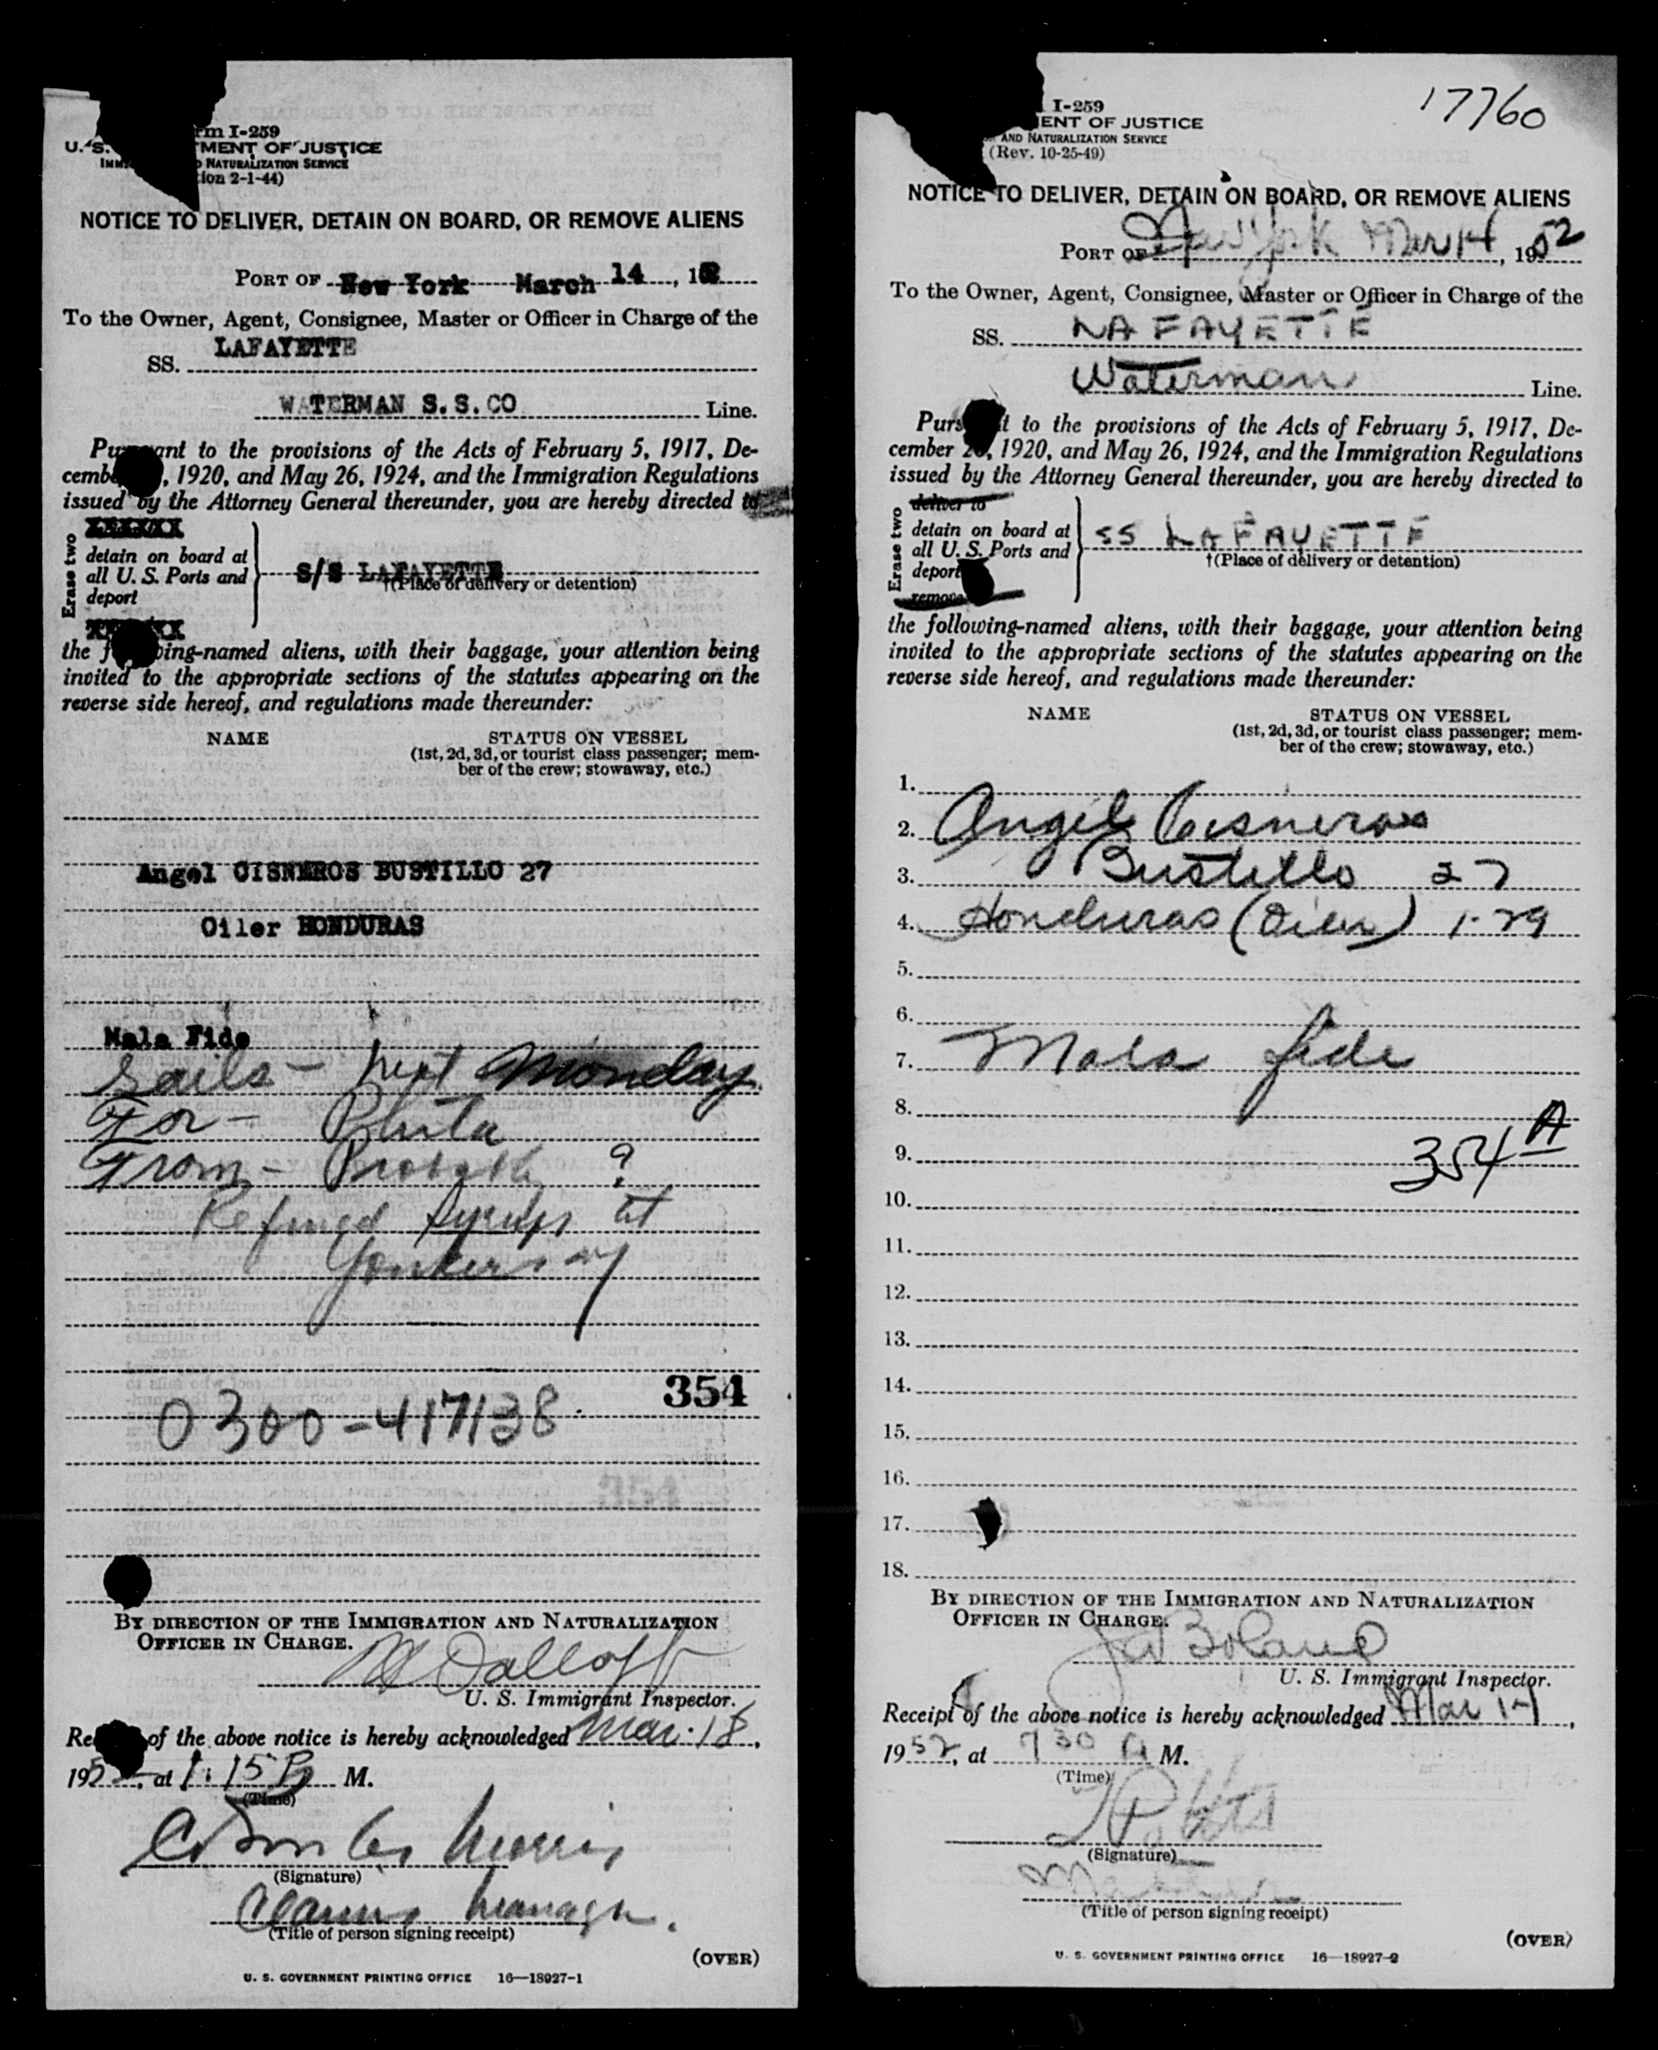 rm I-259
U. S. TMENT OF JUSTICE
IMM NATURALIZATION SERVICE
ion 2-1-44)
NOTICE TO DELIVER, DETAIN ON BOARD, OR REMOVE ALIENS
PORT OF New York March 14, 1952
To the Owner, Agent, Consignee, Master or Officer in Charge of the
SS. LAFAYETTE
WATERMAN S.S.CO Line.
Pursuant to the provisions of the Acts of February 5, 1917, De-
cemb , 1920, and May 26, 1924, and the Immigration Regulations
issued by the Attorney General thereunder, you are hereby directed to
Erase two
detain on board at
all U. S. Ports and
deport
S/S LAFAYETTE
†(Place of delivery or detention)
the following-named aliens, with their baggage, your attention being
invited to the appropriate sections of the statutes appearing on the
reverse side hereof, and regulations made thereunder:
NAME STATUS ON VESSEL
(1st, 2d, 3d, or tourist class passenger; mem-
ber of the crew; stowaway, etc.)
Angel CISNEROS BUSTILLO 27
Oiler HONDURAS
Mala Fide
Sails - next Monday
For - Phila
From - Probably ?
Refined Syrups at
Yonkers NY
354
0300-417138
BY DIRECTION OF THE IMMIGRATION AND NATURALIZATION
OFFICER IN CHARGE.
U. S. Immigrant Inspector.
Receipt of the above notice is hereby acknowledged Mar. 18,
1952, at 1:15 P M.
(Time)
Charles Morris
(Signature)
(Title of person signing receipt)
(OVER)
U. S. GOVERNMENT PRINTING OFFICE 16—18927-1
17760
I-259
MENT OF JUSTICE
AND NATURALIZATION SERVICE
(Rev. 10-25-49)
NOTICE TO DELIVER, DETAIN ON BOARD, OR REMOVE ALIENS
PORT OF New York Mar 14, 1952
To the Owner, Agent, Consignee, Master or Officer in Charge of the
SS. LAFAYETTE
Waterman Line.
Pursuant to the provisions of the Acts of February 5, 1917, De-
cember 26, 1920, and May 26, 1924, and the Immigration Regulations
issued by the Attorney General thereunder, you are hereby directed to
Erase two
deliver to
detain on board at
all U. S. Ports and
deport
remove
SS LAFAYETTE
†(Place of delivery or detention)
the following-named aliens, with their baggage, your attention being
invited to the appropriate sections of the statutes appearing on the
reverse side hereof, and regulations made thereunder:
NAME STATUS ON VESSEL
(1st, 2d, 3d, or tourist class passenger; mem-
ber of the crew; stowaway, etc.)
1.
2. Angel Cisneros
3. Bustillo 27
4. Honduras (Oiler) 1-29
5.
6.
7. Mala fide
8.
9. 354 A
10.
11.
12.
13.
14.
15.
16.
17.
18.
BY DIRECTION OF THE IMMIGRATION AND NATURALIZATION
OFFICER IN CHARGE.
J W Boland
U. S. Immigrant Inspector.
Receipt of the above notice is hereby acknowledged Mar 14,
1952, at 7 30 A M.
(Time)
(Signature)
(Title of person signing receipt)
(OVER)
U. S. GOVERNMENT PRINTING OFFICE 16—18927-2